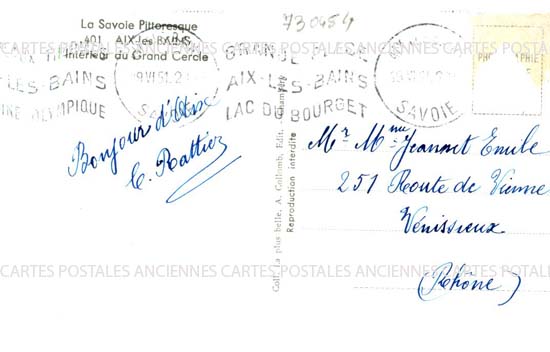 La Savoie Pittoresque
401 AIX-les-BAINS
Intérieur du Grand Cercle
730454
GRANDE
AIX-LES-BAINS
LAC DU BOURGET
LES-BAINS
OLYMPIQUE
SAVOIE
Bonjour d'Aix
Coll. La plus belle. A. Gollomb, Edit.
Reproduction interdite
Mr Mme Jeannet Emile
251 Route de Vienne
Vénissieux.
(Rhône)
CARTES POSTALES ANCIENNES CARTES POSTALES ANCIENNES CARTES POSTALES
CARTES POSTALES ANCIENNES CARTES POSTALES ANCIENNES CARTES POSTALES